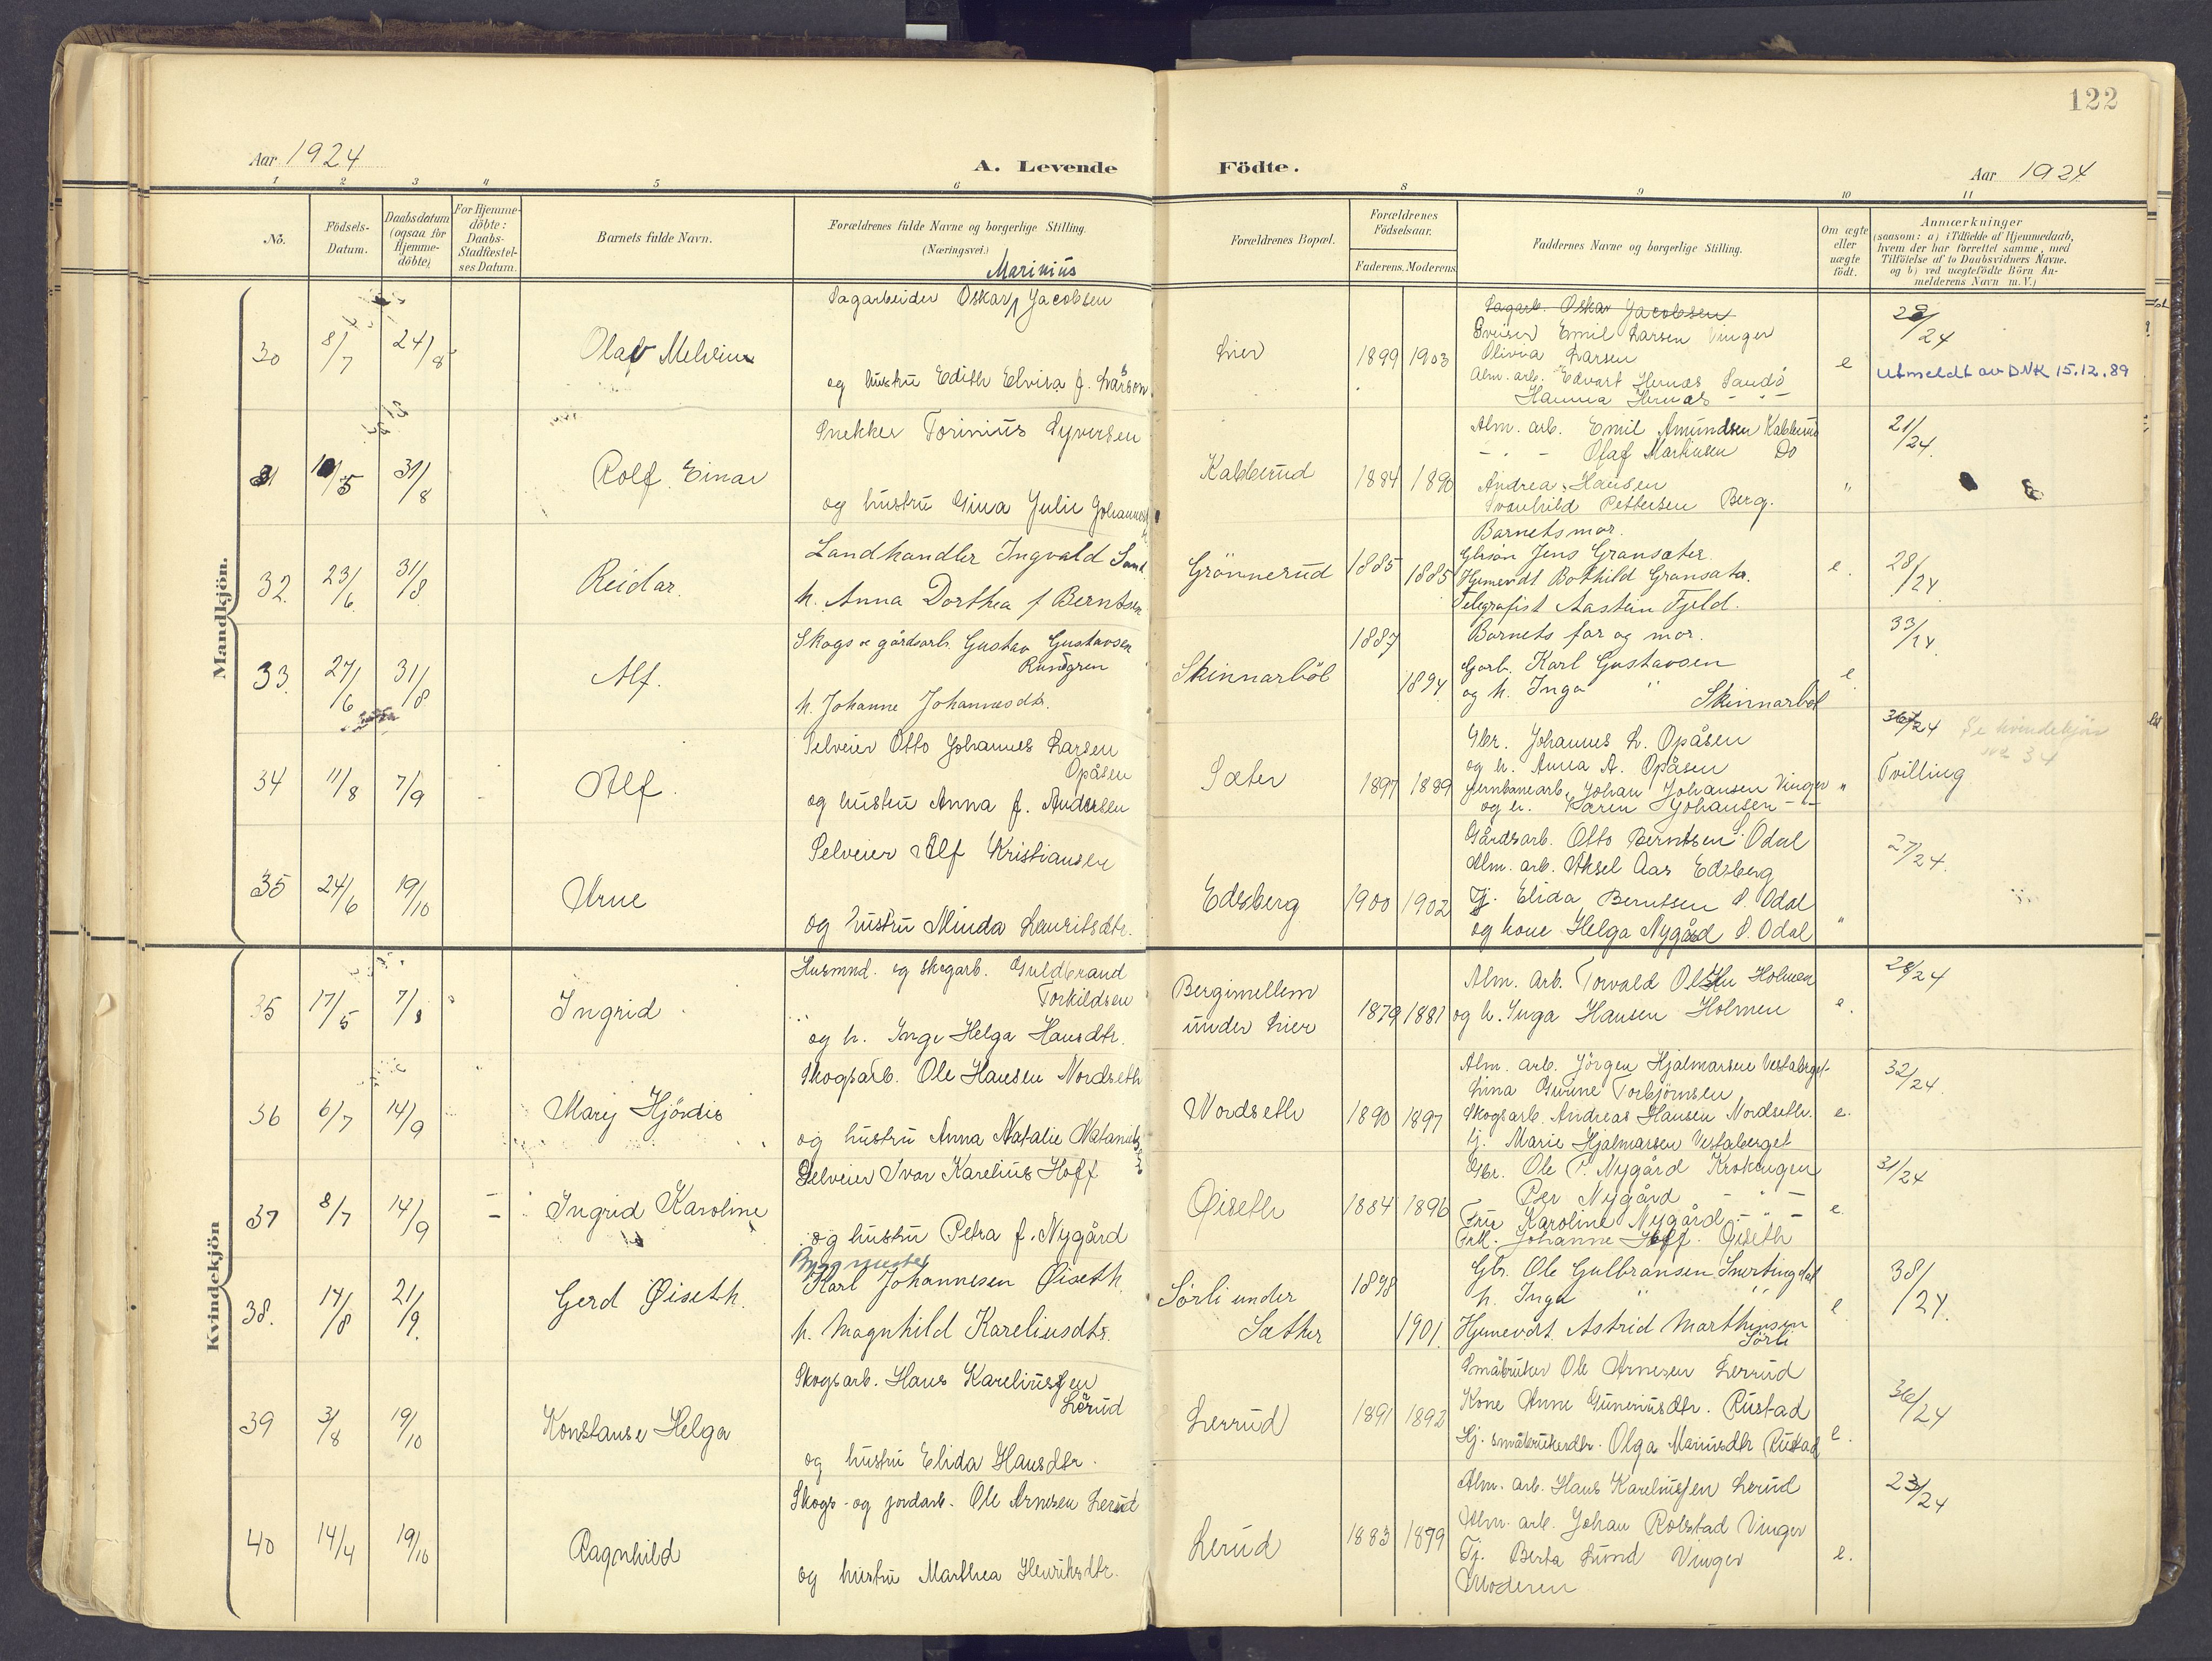 122
Aar 1924
A. Levende
Födte.
Aar 1924
1 2 3 4 5 6 8 9 10 11
No.
Födsels-
Datum.
Daabsdatum
(ogsaa for
Hjemme-
döbte)
For Hjemme-
döbte:
Daabs-
Stadfæstel-
ses Datum.
Barnets fulde Navn.
Forældrenes fulde Navne og borgerlige Stilling.
(Næringsvei.)
Forældrenes Bopæl.
Forældrenes
Födselsaar.
Faderens. Moderens
Faddernes Navne og borgerlige Stilling.
Om ægte
eller
uægte
födt.
Anmærkninger
(saasom: a) i Tilfælde af Hjemmedaab,
hvem der har forrettet samme, med
Tilföielse af to Daabsvidners Navne.
og b) ved uægtefödte Börn An-
melderens Navn m.V.)
Mandkjön.
30
8/7
24/8
Olaf Melvin
Marinius
Sagarbeider Oskar Jacobsen
og hustru Edith Elvira f. Larson
Lier
1899 1903
Sagarb. Oskar Jacobsen
Emil Larsen Vinger
Olivia Larsen
Alm. arb. Edvart Hernæs Sandö
Hanna Hernæs - " -
e
/24
Utmeldt av DNK 15.12.89
31
/5
31/8
Rolf Einar
Snekker Torinius Syversen
og hustru Gina Julie
Kabberud
1884 1890
Alm. arb. Emil Amundsen Kabberud
- " - Olaf Martinsen Do
Andrea Hansen
Svanhild Pettersen Berg.
"
21/24.
32.
23/6.
31/8
Reidar.
Landhandler Ingvald Sand
h. Anna Dorthea f Berntsen
Grönnerud
1885 1885
Barnets mor.
Jens Gransæter.
Hjemevdt Bothild Gransæter.
Telegrafist Aastein Fjeld.
e.
28/24.
33.
27/6
31/8
Alf.
Skogs og gårdsarb. Gustav Gustavsen
Rundgren
h. Johanne Johannesdtr.
Skinnarböl
1887 1894
Barnets far og mor.
Garb. Karl Gustavsen
og h. Inga "
Skinnarböl
e.
33/24.
34
11/8
7/9
Alf.
Selveier Otto Johannes Larsen
Opåsen
og hustru Anna f. Andersen
Sæter
1897 1889
Gbr. Johannes L. Opåsen
og h. Anna A. Opåsen
Jernbanearb. Johan Johansen Vinger
og h. Karen Johansen - " -
"
/24 Se kvindekjön
34
Tvilling
35
24/6
19/10
Arne
Selveier Alf Kristiansen
og hustru Minda Lauritsdtr.
Edsberg
1900 1902
Gårdsarb. Otto Berntsen S. Odal
Alm. arb. Aksel Aas Edsberg
Tj. Elida Berntsen S. Odal
og kone Helga Nygård S. Odal
"
27/24.
Kvindekjön
35
17/5
7/8
Ingrid
Husmnd. og skogarb. Guldbrand
Torkildsen
og h. Inga Helga Hansdtr.
Bergimellem
under Lier
1879 1881
Alm. Arb. Torvald Olsen Holmen
og h. Inga Hansen Holmen
e.
28/24
36
6/7
14/9
Mary Hjördis
Skogsarb. Ole Hansen Nordseth
og hustru Anna Natalie
Nordseth
1890 1897
Alm. arb. Jörgen Hjalmarsen Vestaberget.
Lina Gurine Torbjörnsen
Skogsarb. Andreas Hansen Nordseth.
tj. Marie Hjalmarsen Vestaberget
e.
32/24.
37
8/7
14/9
Ingrid Karoline
Selveier Ivar Karelius Hoff
og hustru Petra f. Nygård
Øiseth
1884 1896
Gbr. Ole P. Nygård Krokengen
Per Nygård - " -
Fru Karoline Nygård - " -
Frk. Johanne Hoff. Øiseth
e.
31/24
38.
14/8
21/9.
Gerd Øiseth.
Karl Johannesen Øiseth.
h. Magnhild Kareliusdtr.
Sörli under
Sæther
1898 1901.
Gbr. Ole Gulbransen Snertingdal
h. Inga " "
Hjemevdt. Astrid Marthinsen
Sörli
e
38/24.
39
3/8
19/10
Konstanse Helga
Skogsarb. Hans Kareliussen
Lerud
og hustru Elida Hansdtr.
Lerrud
1891 1892
Småbruker Ole Arnesen Lerrud
Kone Anne Gunerusdtr. Rustad
Hj. småbrukerdtr. Olga Mariusdtr Rustad
e.
36/24
40
14/4
19/10
Ragnhild
Skogs- og jordarb. Ole Arnesen Lerud
og hustru Marthea Henriksdtr.
Lerud
1883 1879
Alm. arb. Hans Kareliussen Lerud
Alm. arb. Johan Rolstad Vinger
Tj. Berta Lund Vinger
Moderen
e.
23/24